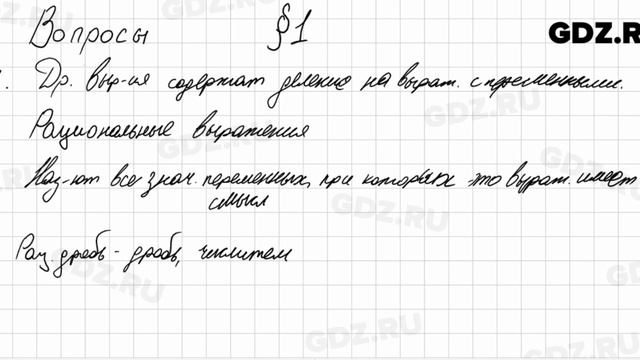 Вопросы §1
GDZ.RU
. Др. выр-ия содержат деление на выраж. с переменными.
Рациональные выражения
Наз-ют все знач. переменных, при которых это выраж. имеет
смысл
Рац. дробь - дробь, числителем